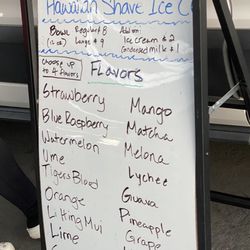 Hawaiian Shave Ice C
Bowl Regular 8 Add on:
(12 oz) Large $9 Ice Cream $2
Condensed Milk $1
Choose up
to 4 flavors
Flavors
Strawberry Mango
Blue Raspberry Matcha
Watermelon Melona
Ume Lychee
Tigers Blood
Orange Guava
Li Hing Mui Pineapple
Lime Grape